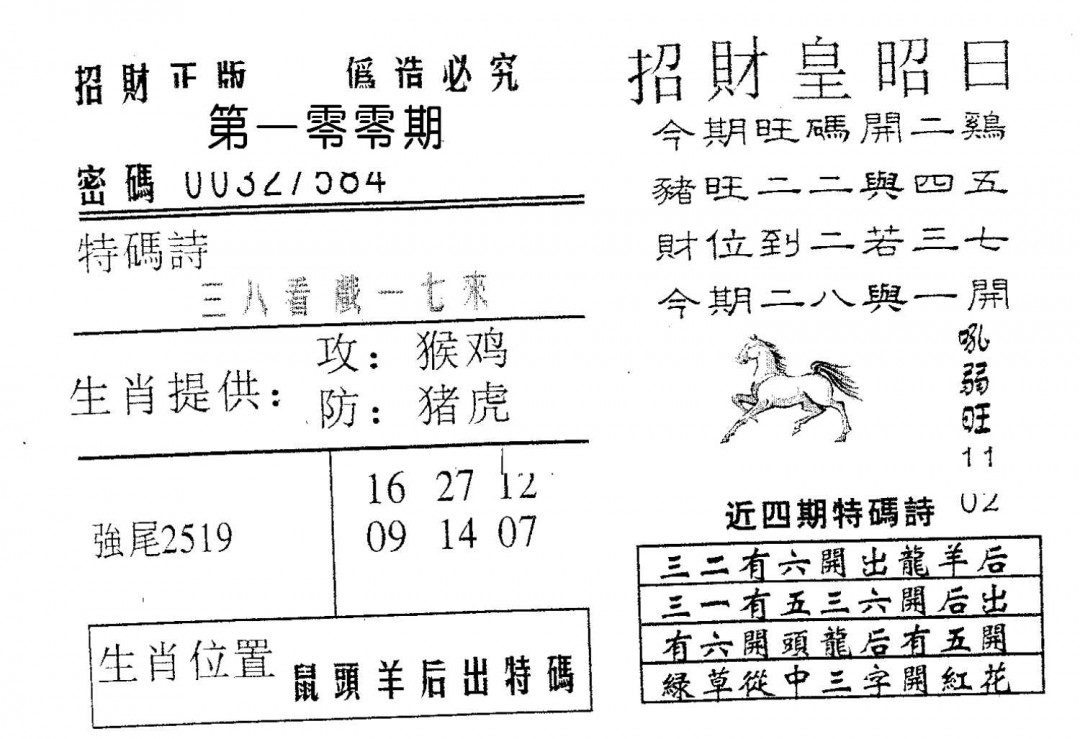 招財正版 僞造必究
第一零零期
密碼 00327584
特碼詩
三八看戲一七來
生肖提供：
攻：猴鸡
防：猪虎
強尾2519
16 27 12
09 14 07
生肖位置 鼠頭羊后出特碼
招財皇昭日
今期旺碼開二鷄
豬旺二二與四五
財位到二若三七
今期二八與一開
吼弱旺11 02
近四期特碼詩
三二有六開出龍羊后
三一有五三六開后出
有六開頭龍后有五開
緑草從中三字開紅花